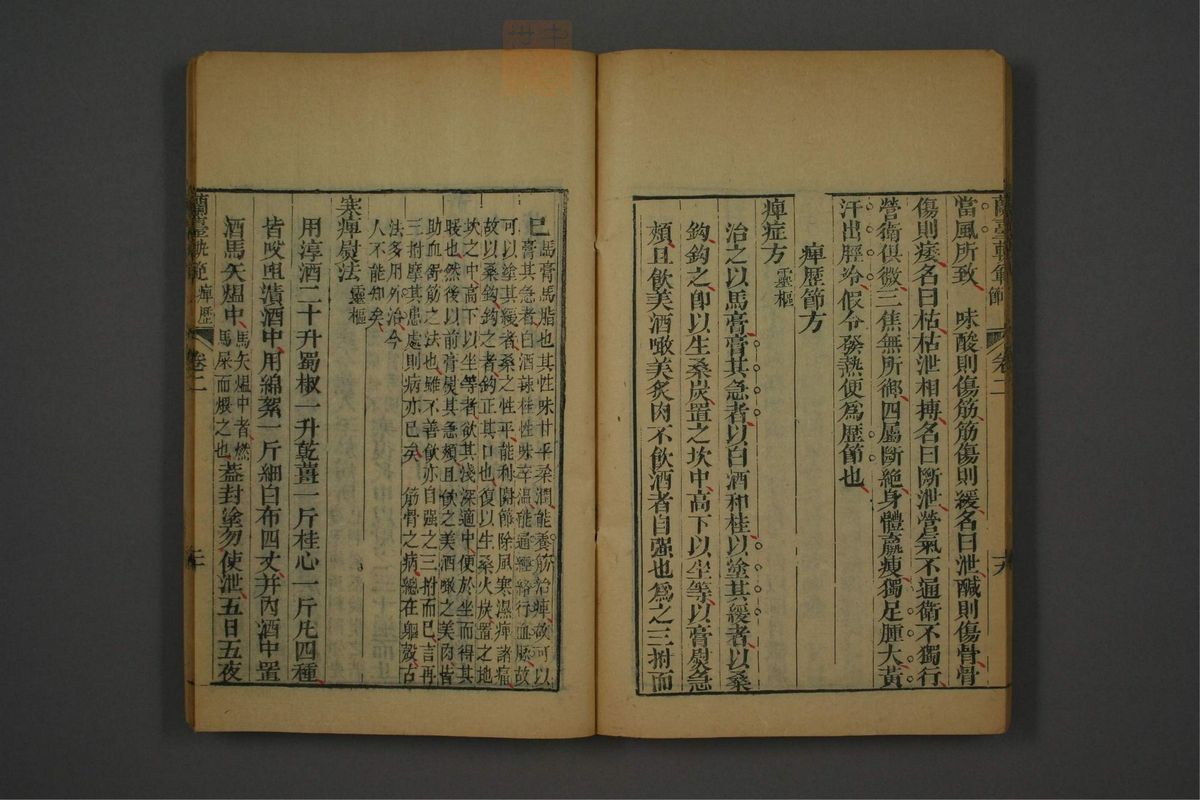 當風所致　味酸則傷筋筋傷則緩名曰泄醎則傷骨骨
傷則痿名曰枯枯泄相搏名曰斷泄營氣不通衛不獨行
營衛俱微三焦無所御四屬斷絶身體羸瘦獨足腫大黃
汗出脛冷假令發熱便為歷節也
痺歷節方
痺症方 靈樞
治之以馬膏膏其急者以白酒和桂以塗其緩者以桑
鈎鈎之卽以生桑炭置之坎中高下以坐等以膏熨急
頰且飲美酒噉美炙肉不飲酒者自强也為之三拊而
已 馬膏馬脂也其性味甘平柔潤能養筋治痺故可以
膏其急者白酒辣桂性味辛溫能通經絡行血脈故
可以塗其緩者桑之性平能利關節除風寒濕痺諸痛
故以桑鈎鈎之者鈎正其口也復以生桑火炭置之地
坎之中高下以坐等者欲其淺深適中便於坐而得其
暖也然後以前膏熨其急頰且飲之美酒噉之美肉皆
助血舒筋之法也雖不善飲亦自强之三拊而已言再
三拊摩其患處則病亦已矣　筋骨之病總在軀殼古
法多用外治今
人不能知矣
寒痺熨法 靈樞
用淳酒二十升蜀椒一升乾薑一斤桂心一斤凡四種
皆㕮咀漬酒中用綿絮一斤細白布四丈并內酒中置
酒馬矢熅中 馬矢熅中者燃
馬屎而煨之也 蓋封塗勿使泄五日五夜
蘭臺軌範 痺歷 卷二 二十